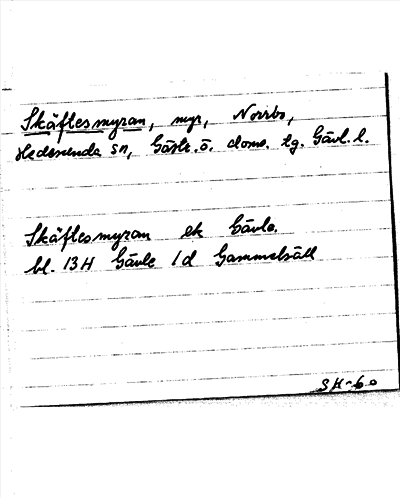 Skäflesmyran, myr, Norrbo,
Hedesunda sn, Gästr. ö. doms. tg. Gävl. l.
Skäflesmyran ek Gävle.
bl. 13H Gävle 1d Gammelsäll
SH-60